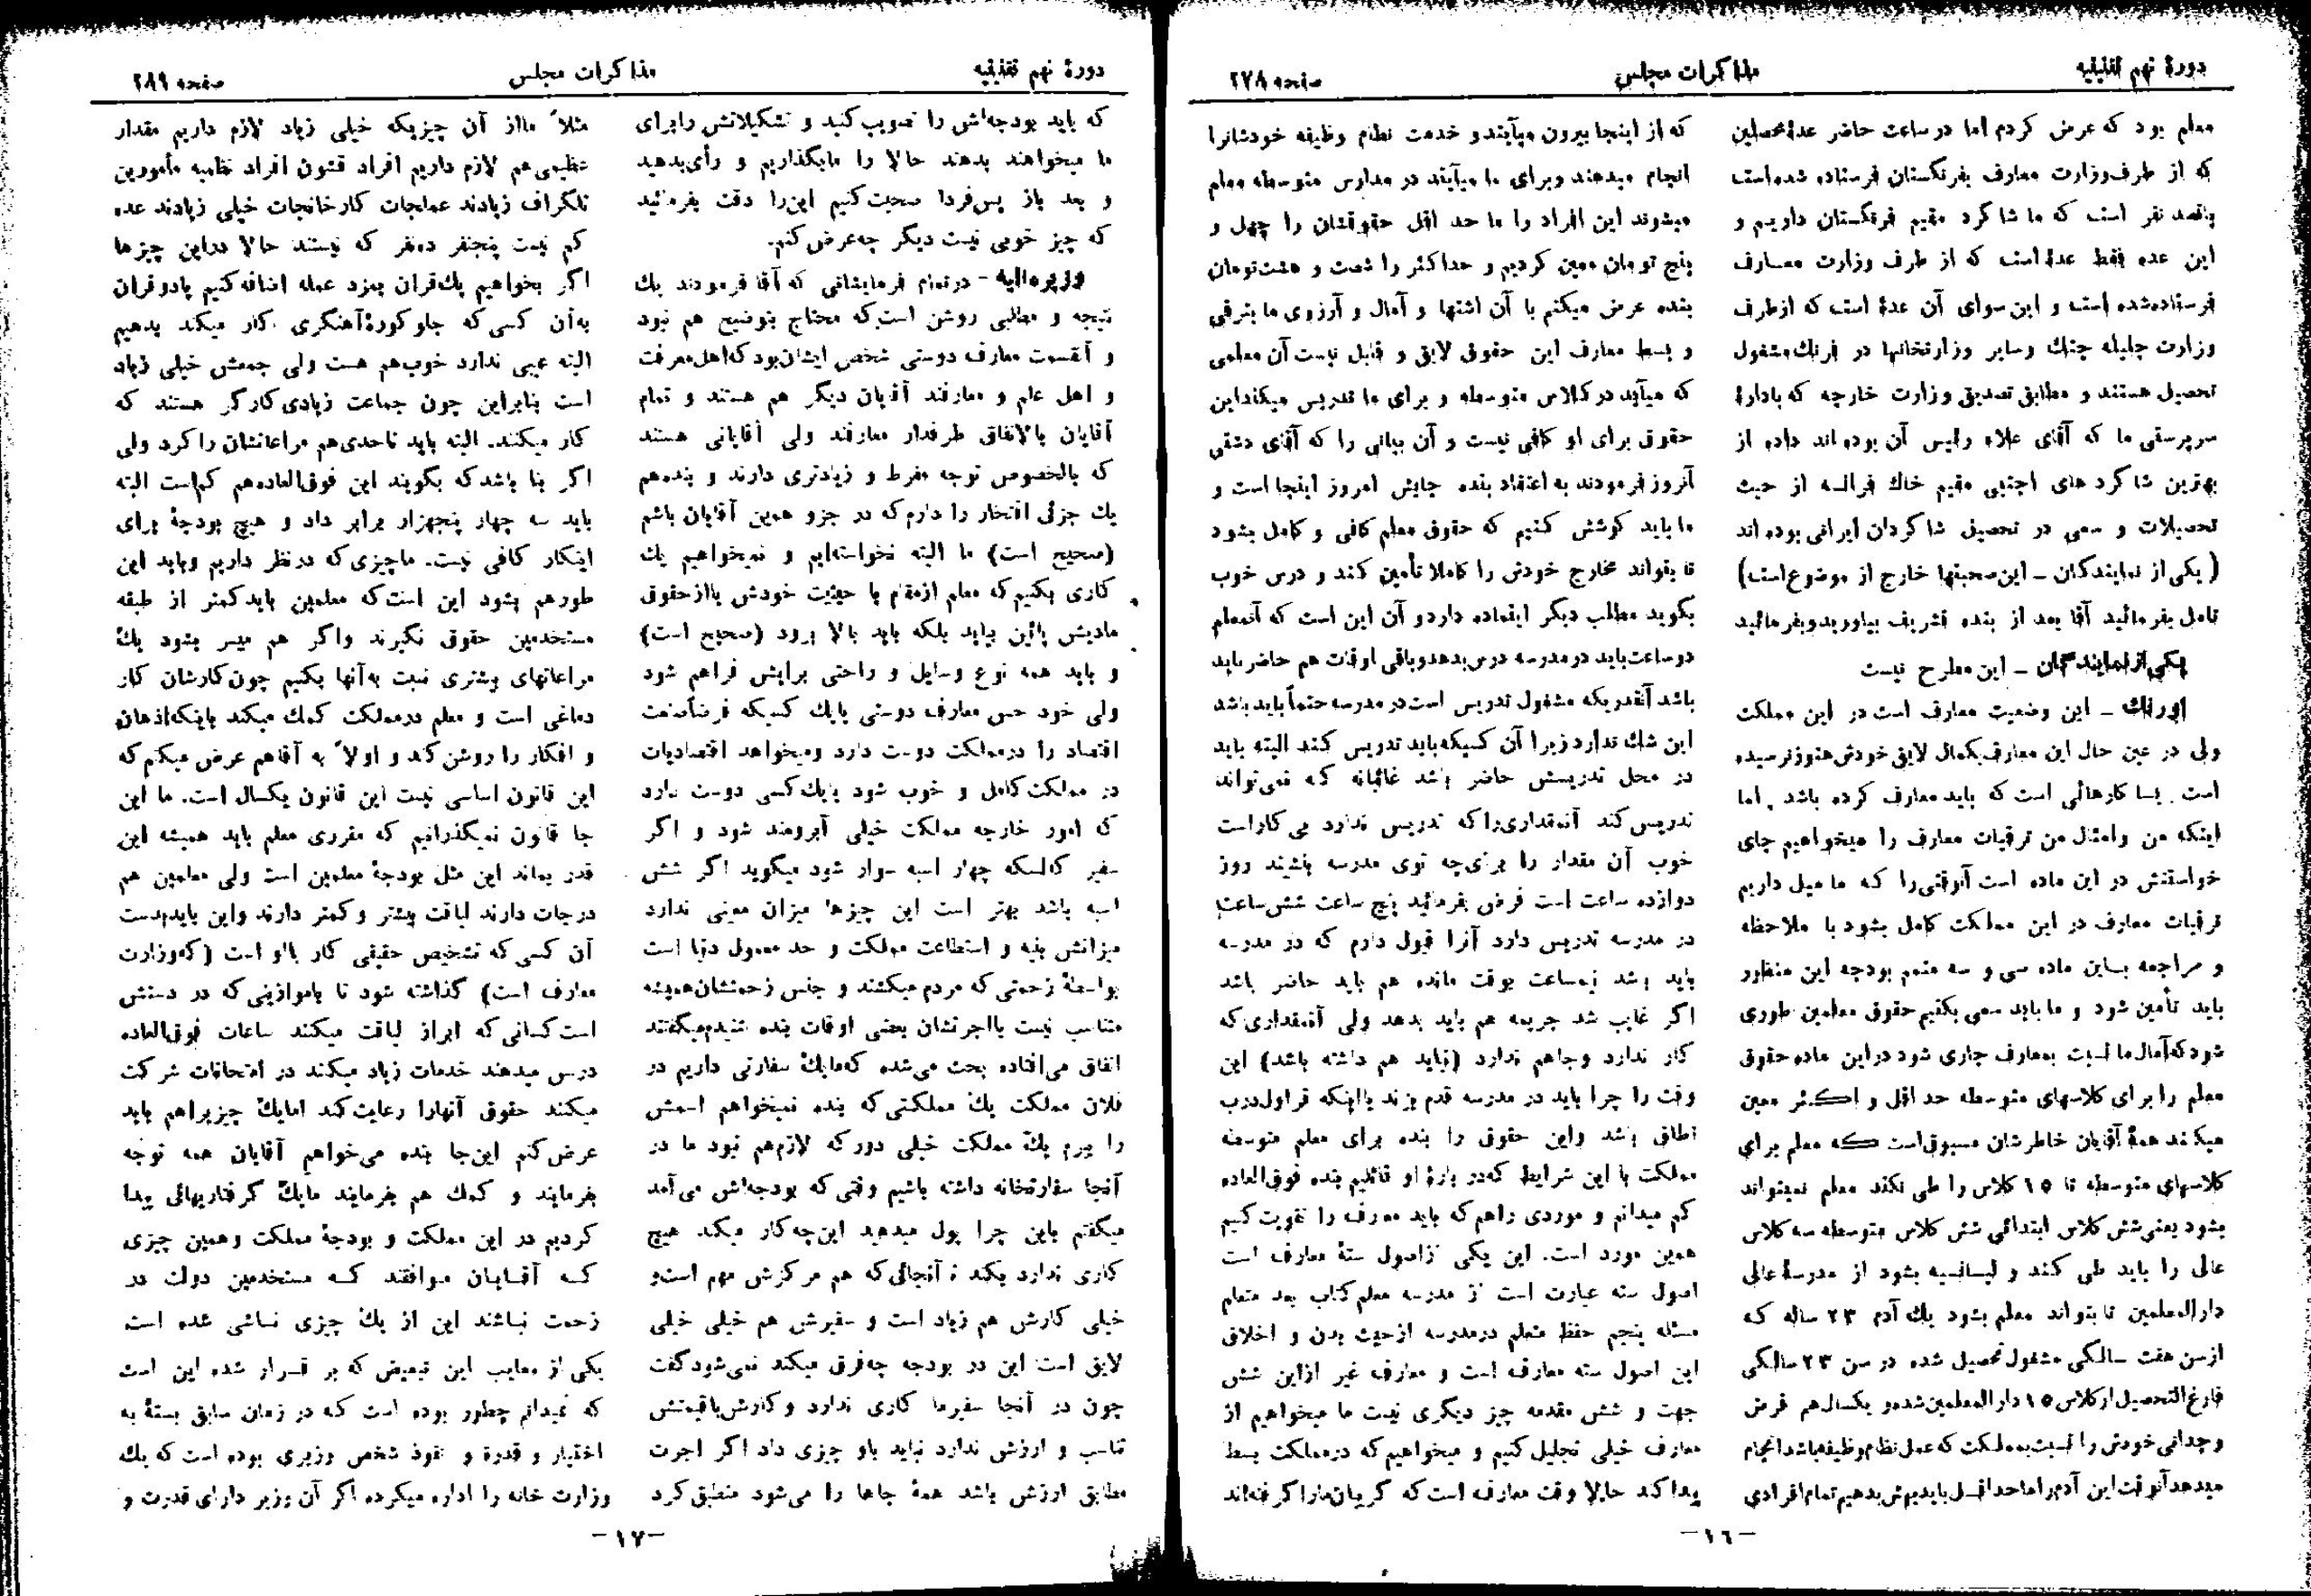 دورۀ نهم تقنینیه
مذاکرات مجلس
صفحه ۲۷۸
معلم بود که عرض کردم اما در ساعت حاضر عدۀ محصلین
که از طرف وزارت معارف بفرنگستان فرستاده شده است
پانصد نفر است که ما شاگرد مقیم فرنگستان داریم و
این عده فقط عدۀ است که از طرف وزارت معارف
فرستاده شده است و این سوای آن عدۀ است که از طرف
وزارت جلیله جنگ و سایر وزارتخانها در فرنگ مشغول
تحصیل هستند و مطابق تصدیق وزارت خارجه که بادارۀ
سرپرستی ما که آقای علاء رئیس آن بوده اند داده از
بهترین شاگرد های اجنبی مقیم خاك فرانسه از حیث
تحصیلات و سعی در تحصیل شاگردان ایرانی بوده اند
(یکی از نمایندگان ـ این صحبتها خارج از موضوع است)
تامل بفرمائید آقا بعد از بنده تشریف بیاورید و بفرمائید
یکی از نمایندگان ـ این مطرح نیست
اورنك ـ این وضعیت معارف است در این مملکت
ولی در عین حال این معارف بکمال لایق خودش هنوز نرسیده
است . بسا کارهائی است که باید معارف کرده باشد . اما
اینکه من و امثال من ترقیات معارف را میخواهیم جای
خواستنش در این ماده است آنوقتی را که ما میل داریم
ترقیات معارف در این مملکت کامل بشود با ملاحظه
و مراجعه باین ماده سی و سه متمم بودجه این منظور
باید تأمین شود و ما باید سعی بکنیم حقوق معلمین طوری
شود که آمال ما نسبت بمعارف جاری شود در این ماده حقوق
معلم را برای کلاسهای متوسطه حد اقل و اکثر معین
میکند همۀ آقایان خاطرشان مسبوق است که معلم برای
کلاسهای متوسطه تا ۱۵ کلاس را طی نکند معلم نمیتواند
بشود یعنی شش کلاس ابتدائی شش کلاس متوسطه سه کلاس
عالی را باید طی کند و لیسانسیه بشود از مدرسۀ عالی
دارالمعلمین تا بتواند معلم بشود یك آدم ۲۳ ساله که
از سن هفت سالگی مشغول تحصیل شده در سن ۲۳ سالگی
فارغ التحصیل از کلاس ۱۵ دارالمعلمین شده و یکسال هم قرض
وجدانی خودش را نسبت بمملکت که عمل نظام وظیفه باشد انجام
میدهد آنوقت این آدم را ما حداقل باید بهش بدهیم تمام افرادی
که از اینجا بیرون میآیند و خدمت نظام وظیفه خودشانرا
انجام میدهند و برای ما میآیند در مدارس متوسطه معلم
میشوند این افراد را ما حد اقل حقوقشان را چهل و
پنج تومان معین کردیم و حداکثر را شصت و هشت تومان
بنده عرض میکنم با آن اشتها و آمال و آرزوی ما بترقی
و بسط معارف این حقوق لایق و قابل نیست آن معلمی
که میآید در کلاس متوسطه و برای ما تدریس میکند این
حقوق برای او کافی نیست و آن بیانی را که آقای دشتی
آنروز فرمودند به اعتقاد بنده جایش امروز اینجا است و
ما باید کوشش کنیم که حقوق معلم کافی و کامل بشود
تا بتواند مخارج خودش را کاملا تأمین کند و درس خوب
بگوید مطلب دیگر اینماده دارد و آن این است که آنمعلم
دو ساعت باید در مدرسه درس بدهد و باقی اوقات هم حاضر باید
باشد آنقدریکه مشغول تدریس است در مدرسه حتماً باید باشد
این شك ندارد زیرا آن کسیکه باید تدریس کند البته باید
در محل تدریسش حاضر باشد غائبانه که نمی تواند
تدریس کند آنمقداری را که تدریس ندارد بی کار است
خوب آن مقدار را برای چه توی مدرسه بنشیند روز
دوازده ساعت است فرض بفرمائید پنج ساعت شش ساعت
در مدرسه تدریس دارد آنرا قبول دارم که در مدرسه
باید باشد نیمساعت بوقت مانده هم باید حاضر باشد
اگر غایب شد جریمه هم باید بدهد ولی آنمقداری که
کار ندارد وجاهم ندارد (نباید هم داشته باشد) این
وقت را چرا باید در مدرسه قدم بزند یا اینکه قراول درب
اطاق باشد و این حقوق را بنده برای معلم متوسطه
مملکت با این شرایط که در بارۀ او قائلیم بنده فوق العاده
کم میدانم و موردی را هم که باید معارف را تقویت کنیم
همین مورد است. این یکی از اصول ستۀ معارف است
اصول سته عبارت است از مدرسه معلم کتاب بعد متعلم
مسئله پنجم حفظ متعلم در مدرسه از حیث بدن و اخلاق
این اصول سته معارف است و معارف غیر از این شش
جهت و شش مقدمه چیز دیگری نیست ما میخواهیم از
معارف خیلی تجلیل کنیم و میخواهیم که در مملکت بسط
پیدا کند حالا وقت معارف است که گریبان ما را گرفته اند
ـ۱۶ـ
دورۀ نهم تقنینیه
مذاکرات مجلس
صفحه ۲۸۹
که باید بودجه اش را تصویب کنید و تشکیلاتش را برای
ما میخواهند بدهند حالا را ما بگذاریم و رأی بدهید
و بعد باز پس فردا صحبت کنیم این را دقت بفرمائید
که چیز خوبی نیست دیگر چه عرض کنم.
وزیر مالیه ـ در تمام فرمایشاتی که آقا فرمودند یك
نتیجه و مطلبی روشن است که محتاج بتوضیح هم نبود
و آنقسمت معارف دوستی شخص ایشان بود که اهل معرفت
و اهل علم و معارفند آقایان دیگر هم هستند و تمام
آقایان بالاتفاق طرفدار معارفند ولی آقایانی هستند
که بالخصوص توجه مفرط و زیادتری دارند و بنده هم
یك جزئی افتخار را دارم که در جزو همین آقایان باشم
(صحیح است) ما البته نخواسته ایم و نمیخواهیم یك
کاری بکنیم که معلم از مقام یا حیثیت خودش یا از حقوق
مادیش پائین بیاید بلکه باید بالا برود (صحیح است)
و باید همه نوع وسایل و راحتی برایش فراهم شود
ولی خود حس معارف دوستی یا یك کسیکه فرضاً صنعت
اقتصاد را در مملکت دوست دارد و میخواهد اقتصادیات
در مملکت کامل و خوب شود یا یك کسی دوست دارد
که امور خارجه مملکت خیلی آبرومند شود و اگر
سفیر کالسکه چهار اسبه سوار شود میگوید اگر شش
اسبه باشد بهتر است این چیزها میزان معینی ندارد
میزانش بنیه و استطاعت مملکت و حد معمول دنیا است
بواسطۀ زحمتی که مردم میکشند و جنس زحمتشان همیشه
متناسب نیست با اجرتشان بعضی اوقات بنده شنیدم میگفتند
اتفاق می افتاده بحث می شده که ما یك سفارتی داریم در
فلان مملکت یك مملکتی که بنده نمیخواهم اسمش
را ببرم یك مملکت خیلی دور که لازم هم نبود ما در
آنجا سفارتخانه داشته باشیم وقتی که بودجه اش می آمد
میگفتم باین چرا پول میدهید این چه کار میکند هیچ
کاری ندارد بکند تا آنجائی که هم مرکزش مهم است و
خیلی کارش هم زیاد است و سفیرش هم خیلی خیلی
لایق است این در بودجه چه فرق میکند نمی شود گفت
چون در آنجا سفیر ما کاری ندارد و کارش با قیمتش
تناسب و ارزش ندارد نباید باو چیزی داد اگر اجرت
مطابق ارزش باشد همۀ جاها را می شود منطبق کرد
مثلاً ما از آن چیزیکه خیلی زیاد لازم داریم مقدار
عظیمی هم لازم داریم افراد قشون افراد نظمیه مأمورین
تلگراف زیادند عملجات کارخانجات خیلی زیادند عده
کم نیست پنجنفر ده نفر که نیستند حالا در این چیزها
اگر بخواهیم یك قران بمزد عمله اضافه کنیم یا دو قران
به آن کسی که جلو کورۀ آهنگری کار میکند بدهیم
البته عیبی ندارد خوب هم هست ولی جمعش خیلی زیاد
است بنابراین چون جماعت زیادی کارگر هستند که
کار میکنند. البته باید تا حدی هم مراعاتشان را کرد ولی
اگر بنا باشد که بگویند این فوق العاده هم کم است البته
باید سه چهار پنجهزار برابر داد و هیچ بودجۀ برای
اینکار کافی نیست. ما چیزی که در نظر داریم و باید این
طور هم بشود این است که معلمین باید کمتر از طبقه
مستخدمین حقوق نگیرند و اگر هم میسر بشود یك
مراعاتهای بیشتری نسبت به آنها بکنیم چون کارشان کار
دماغی است و معلم در مملکت کمك میکند باینکه اذهان
و افکار را روشن کند و اولاً به آقا هم عرض میکنم که
این قانون اساسی نیست این قانون یکسال است. ما این
جا قانون نمیگذرانیم که مقرری معلم باید همیشه این
قدر بماند این مثل بودجۀ معلمین است ولی معلمین هم
درجات دارند لیاقت بیشتر و کمتر دارند و این باید بدست
آن کسی که تشخیص حقیقی کار با او است (که وزارت
معارف است) گذاشته شود تا با موازینی که در دستش
است کسانی که ابراز لیاقت میکنند ساعات فوق العاده
درس میدهند خدمات زیاد میکند در امتحانات شرکت
میکند حقوق آنها را رعایت کند اما یك چیز را هم باید
عرض کنم این جا بنده می خواهم آقایان همه توجه
بفرمایند و کمك هم بفرمایند ما یك گرفتاریهائی پیدا
کردیم در این مملکت و بودجۀ مملکت و همین چیزی
که آقایان موافقند که مستخدمین دولت در
زحمت نباشند این از یك چیزی ناشی شده است
یکی از معایب این تبعیض که بر قرار شده این است
که نمیدانم چطور بوده است که در زمان سابق بستۀ به
اختیار و قدرة و نفوذ شخص وزیری بوده است که یك
وزارت خانه را اداره میکرده اگر آن وزیر دارای قدرت و
ـ۱۷ـ